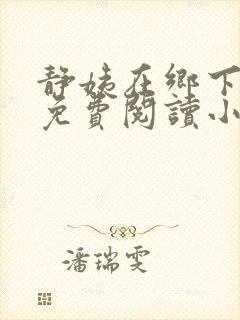 静姨在鄉下
免費閱讀小
潘瑞雯